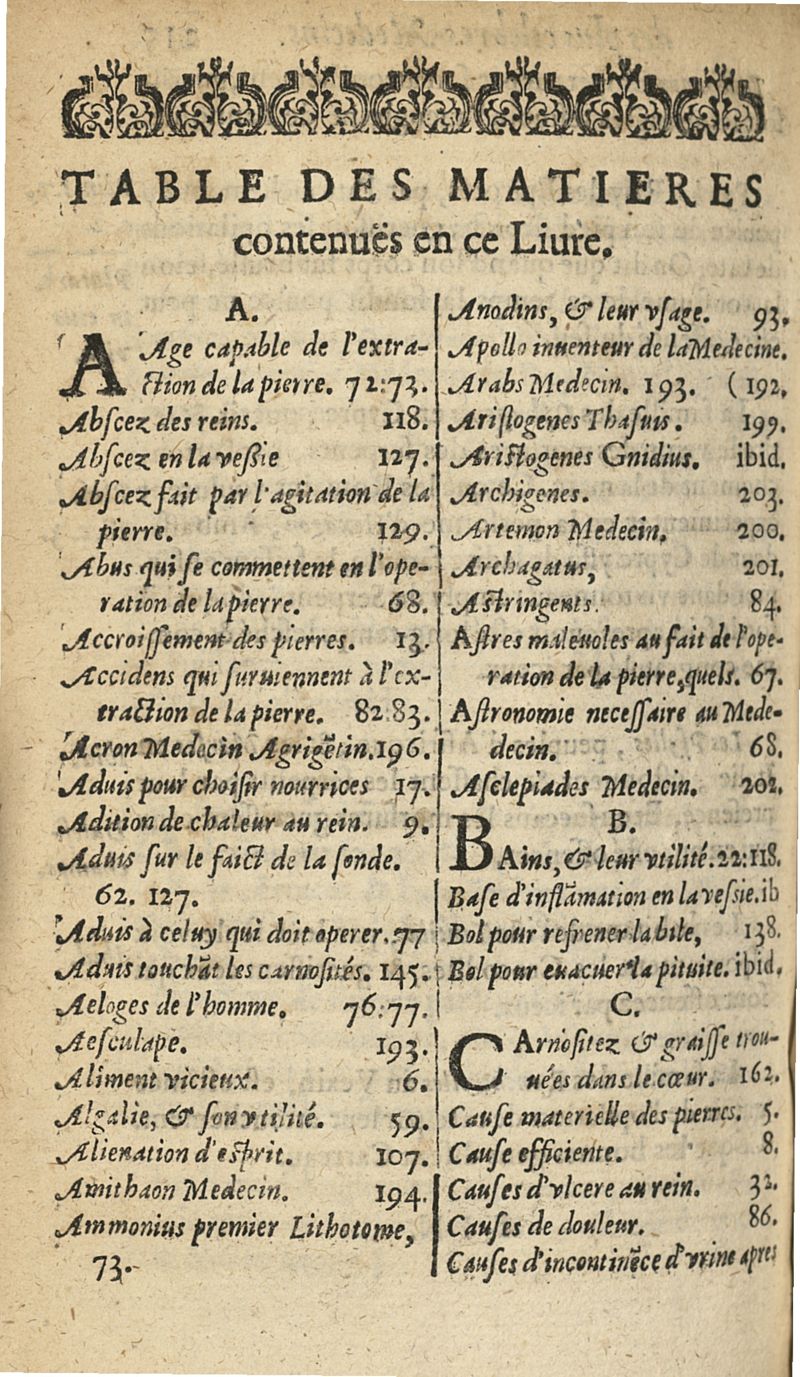 TABLE DES MATIERES
contenuës en ce Liure.
A.
AAge capable de l'extra-
ction de la pierre. 72:73.
Abſcez des reins. 118.
Abſcez en la veſsie 127.
Abſcez fait par l'agitation de la
pierre. 129.
Abus qui ſe commettent en l'ope-
ration de la pierre. 68.
Accroiſſement des pierres. 13.
Accidens qui ſuruiennent à l'ex-
traction de la pierre. 82.83.
Acron Medecin Agrigētin. 196.
Aduis pour choiſir nourrices 17.
Adition de chaleur au rein. 9.
Aduis ſur le faict de la ſonde.
62. 127.
Aduis à celuy qui doit operer. 77
Aduis touchāt les carnoſités. 145.
Aeloges de l'homme. 76:77.
Aeſculape. 193.
Aliment vicieux. 6.
Algalie, & ſon vtilité. 59.
Alienation d'eſprit. 107.
Amithaon Medecin. 194.
Ammonius premier Lithotome,
73.
Anodins, & leur vſage. 93.
Apollo inuenteur de la Medecine.
Arabs Medecin. 193. (192.
Ariſtogenes Thaſuis. 199.
Ariſtogenes Gnidius. ibid.
Archigenes. 203.
Artemon Medecin. 200.
Archagatus, 201.
Aſtringents. 84.
Aſtres maleuoles au fait de l'ope-
ration de la pierre, quels. 67.
Aſtronomie neceſſaire au Mede-
decin. 68.
Aſclepiades Medecin. 202.
B.
BAins, & leur vtilité. 22:118.
Baſe d'inflāmation en la veſsie. ib
Bol pour refrener la bile, 138.
Bol pour euacuer la pituite. ibid.
C.
CArnoſitez & graiſſe trou-
uées dans le cœur. 162.
Cauſe materielle des pierres. 5.
Cauſe efficiente. 8.
Cauſes d'vlcere au rein. 32.
Cauſes de douleur. 86.
Cauſes d'incontinēce d'vrine apres